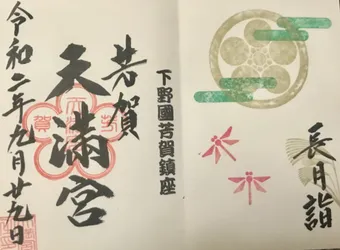 長月詣
下野國芳賀鎮座
芳賀
天満宮
令和二年九月廿九日